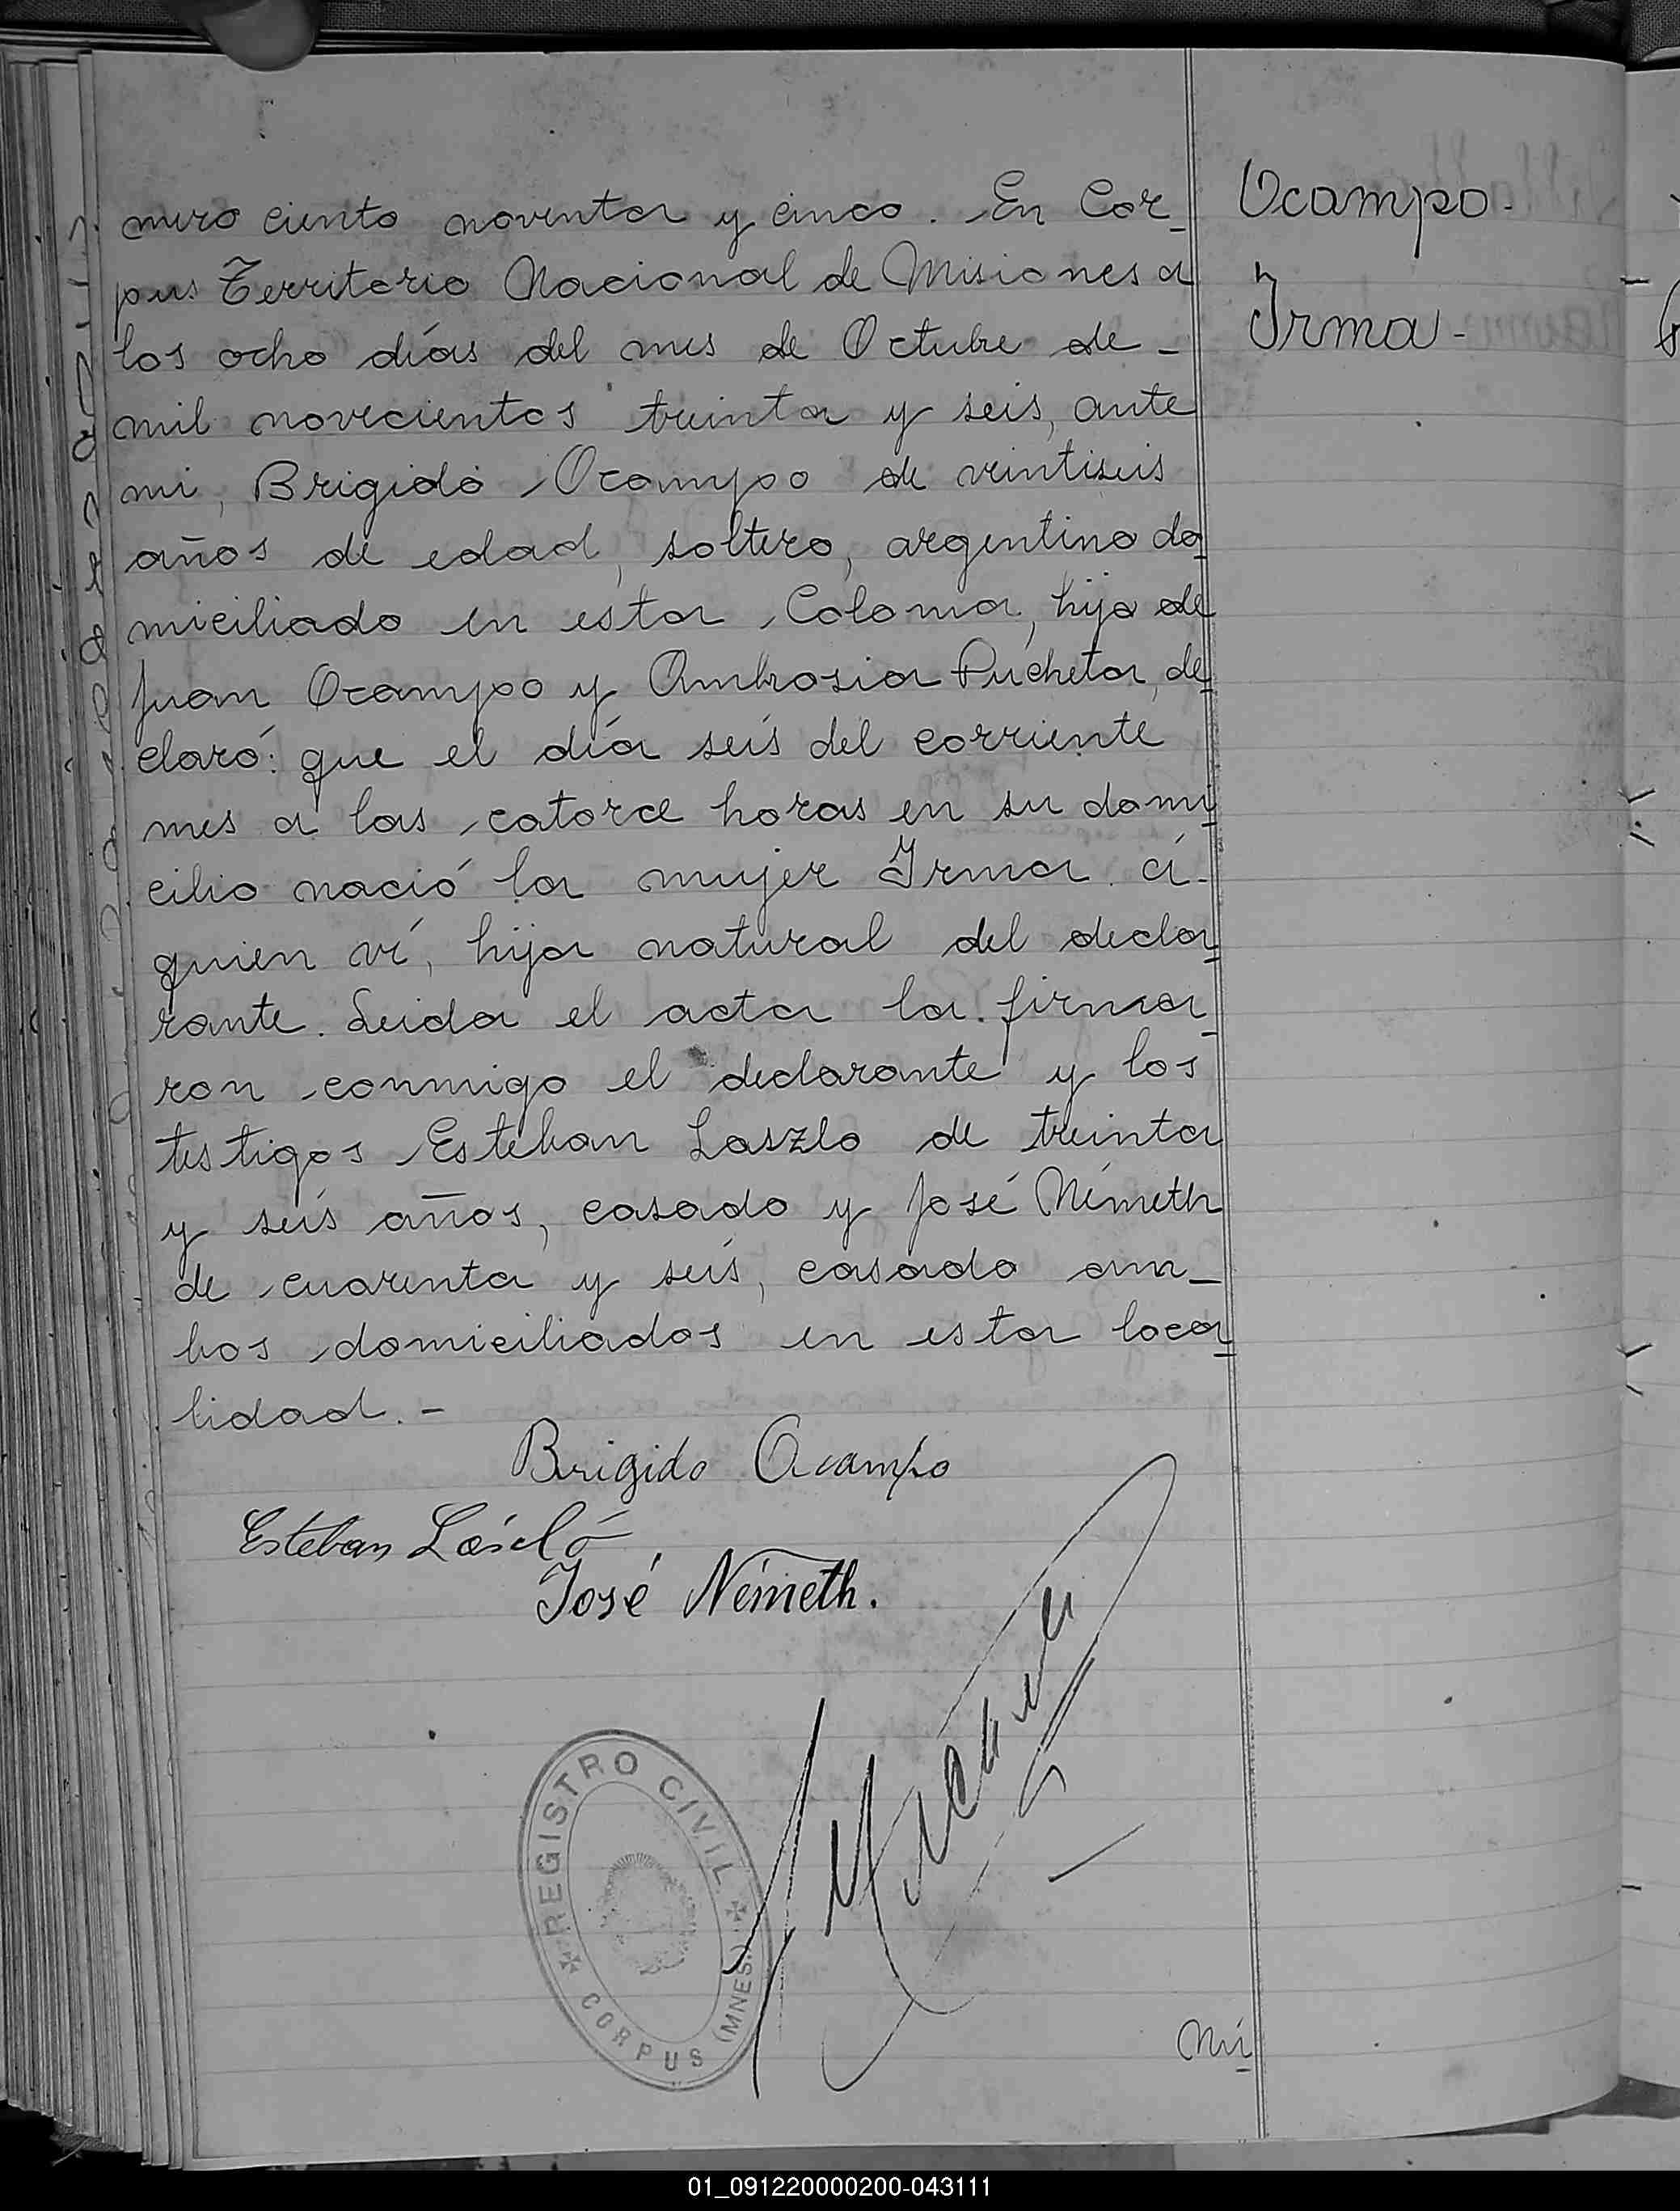 mero ciento noventa y cinco. En Cor_
pus Territorio Nacional de Misiones a
los ocho días del mes de Octubre de -
mil novecientos treinta y seis, ante
mi, Brigido Ocampo de veintiseis
años de edad, soltero, argentino do_
miciliado en esta Colonia, hijo de
Juan Ocampo y Ambrosia Pucheta, de_
claró: que el día seis del corriente
mes a las catorce horas en su domi_
cilio nació la mujer Irma a -
quien ví, hija natural del decla_
rante. Leida el acta la firma_
ron conmigo el declarante y los
testigos Esteban Laszlo de treinta
y seis años, casado y José Németh
de cuarenta y seis, casado am_
bos domiciliados en esta loca_
lidad. -
Ocampo -
Irma -
Brigido Ocampo
Esteban László
José Németh.
REGISTRO CIVIL
CORPUS (MNES.)
Nú_
01_091220000200-043111